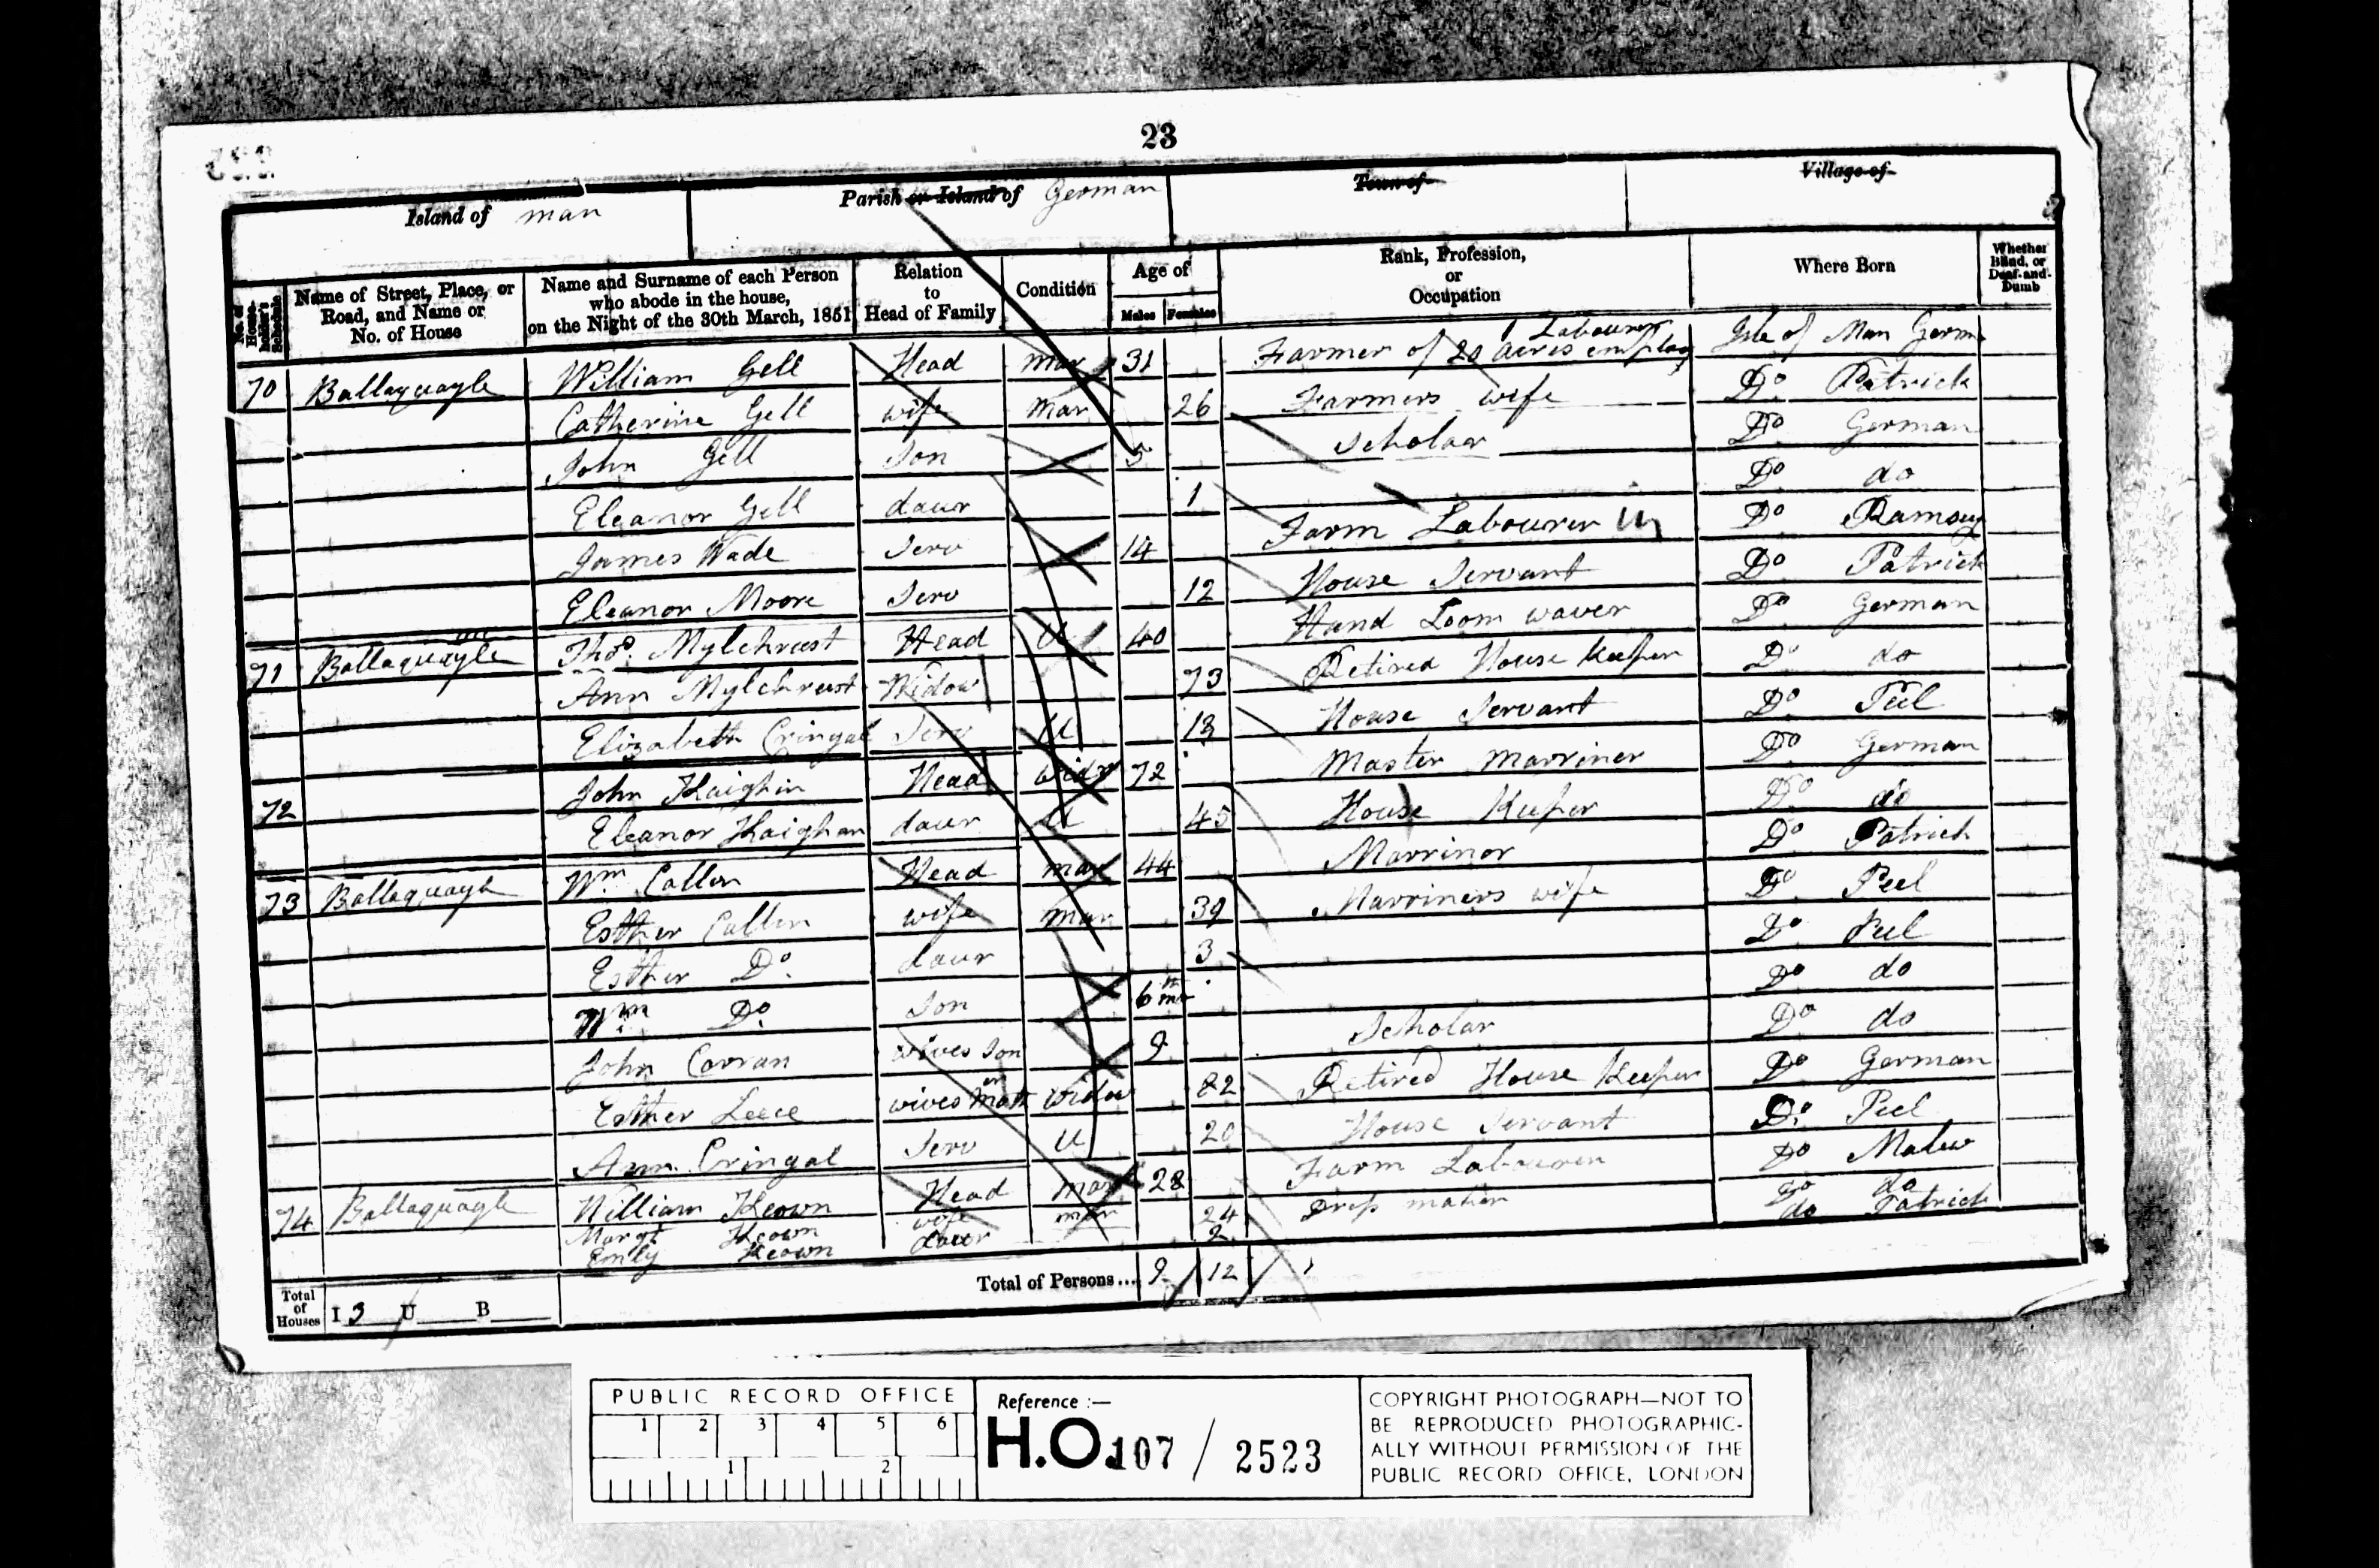 23
Island of man Parish or Island of German Town of Village of
No. of House-holder's Schedule
Name of Street, Place, or Road, and Name or No. of House
Name and Surname of each Person who abode in the house, on the Night of the 30th March, 1851
Relation to Head of Family
Condition
Age of
Males Females
Rank, Profession, or Occupation
Where Born
Whether Blind, or Deaf-and-Dumb
70 Ballaquayle William Gell Head mar 31 Farmer of 20 acres employ 1 Labourer Isle of Man Germ
Catherine Gell wife mar 26 Farmers wife Do Patrick
John Gell Son 5 Scholar Do German
Eleanor Gell daur 1 Do do
James Wade Serv 14 Farm Labourer Do Ramsey
Eleanor Moore Serv 12 House Servant Do Patrick
71 Ballaquayle Thos. Mylchreest Head U 40 Hand Loom waver Do German
Ann Mylchreest Widow 73 Retired House Keeper Do do
Elizabeth Cringal Serv U 13 House Servant Do Peel
72 John Kaighin Head widr 72 Master Marriner Do German
Eleanor Kaighan daur U 45 House Keeper Do do
73 Ballaquayle Wm Callen Head mar 44 Marriner Do Patrick
Esther Callen wife mar 39 Marriners wife Do Peel
Esther Do daur 3 Do Peel
Wm Do Son 6 Do do
John Corran wives Son 9 Scholar Do do
Esther Leece wives Moth widow 82 Retired House Keeper Do German
Ann Cringal Serv U 20 House Servant Do Peel
74 Ballaquayle William Keown Head mar 28 Farm Labourer Do Malew
Margt Keown wife mar 24 Drefs maker Do do
Emily Keown daur 2 do Patrick
Total of Houses I 3 U B Total of Persons... 9 12
PUBLIC RECORD OFFICE
1 2 3 4 5 6
1 2
Reference :—
H.O. 107 / 2523
COPYRIGHT PHOTOGRAPH—NOT TO
BE REPRODUCED PHOTOGRAPHIC-
ALLY WITHOUT PERMISSION OF THE
PUBLIC RECORD OFFICE, LONDON